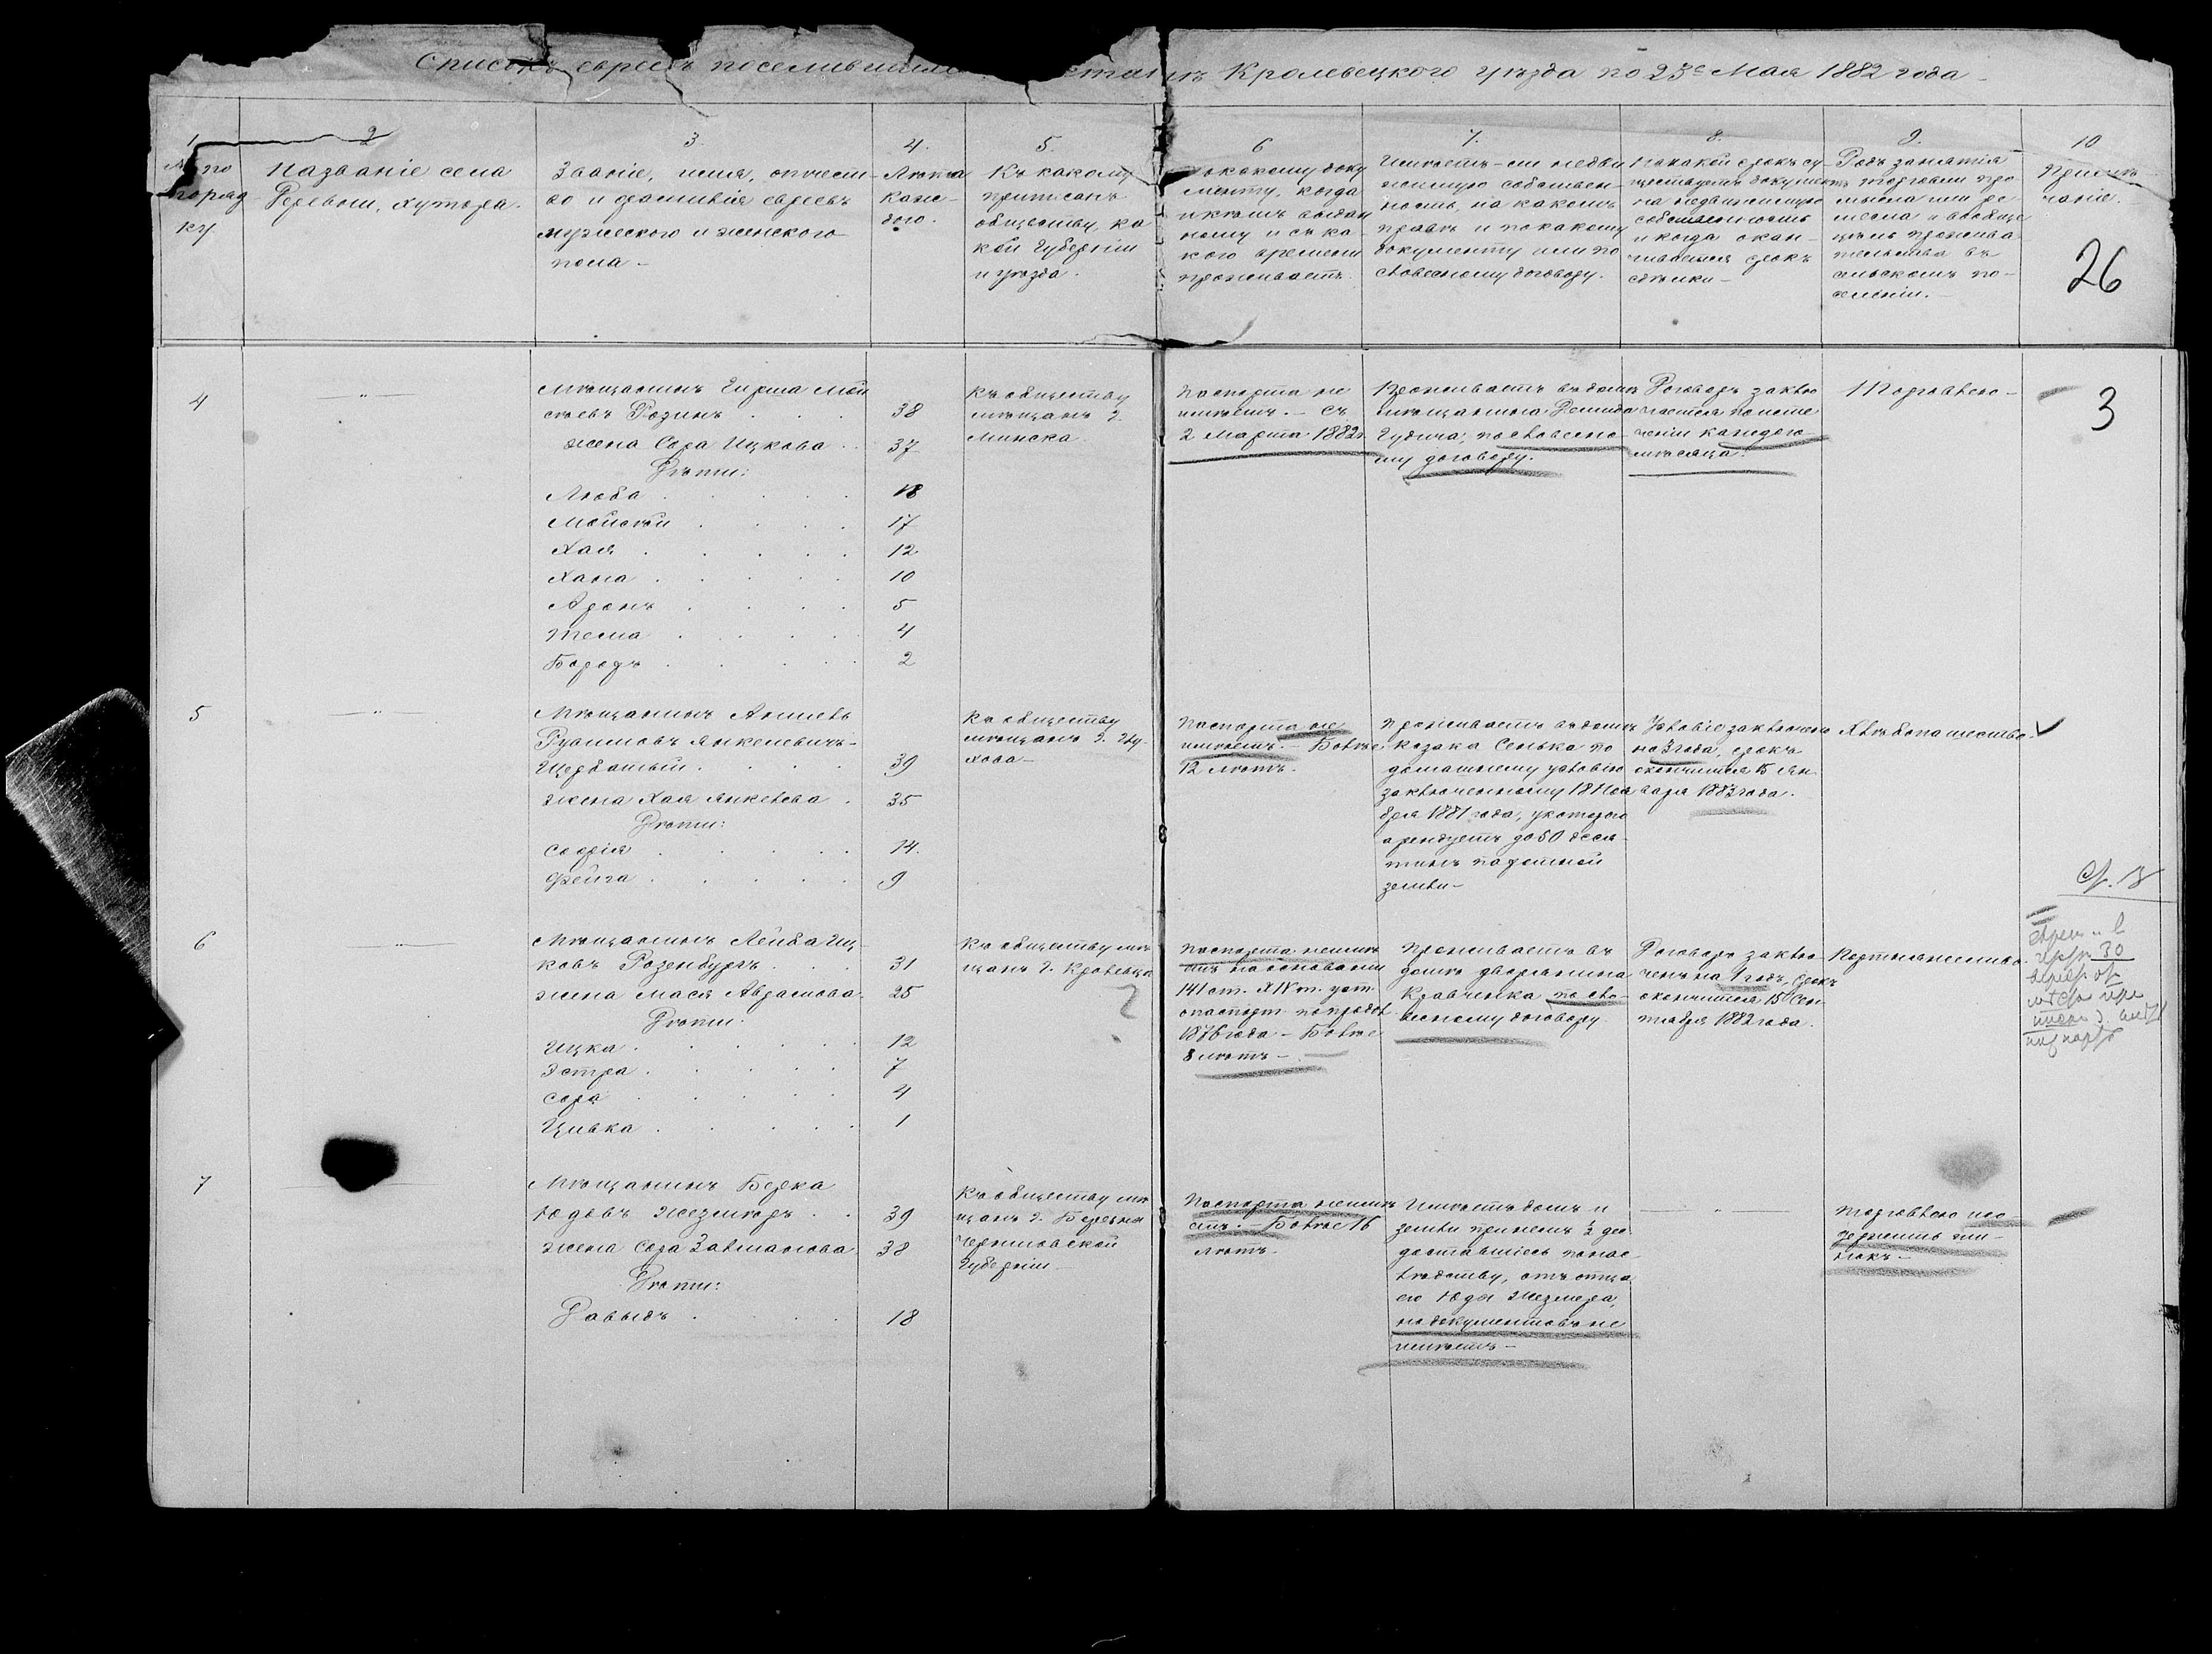 Списокъ евреевъ поселившихся Кролевецкого уѣзда по 23е Мая 1882 года
1
№ по
поряд
ку
2
Названіе села
Деревни, Хутора.
3.
Званіе, имя, отчест-
во и фамилія евреевъ
мужеского и женского
пола –
4.
Лѣта
каж-
дого.
5.
Къ какому
приписанъ
обществу, ка-
кой Губерніи
и уѣзда.
6
По какому доку
менту, когда
и кѣмъ выдан
ному и съ ка-
кого времени
проживаетъ.
7.
Имѣетъ-ли недви
жимую собствен-
ность, на какомъ
правѣ и по какому
документу или по
словесному договору.
8.
На какой срокъ су-
ществуетъ документъ
на недвижимую
собственность
и когда окан-
чивается срокъ
сдѣлки –
9.
Родъ занятія
торговли про-
мысла или ре-
месла и вообще
цѣль прожива
тельства въ
сельскомъ по-
селеніи. –
10
Примѣ-
чаніе.
26
4
— " —
Мѣщанинъ Гирша Мой
сѣевъ Розинъ . . .
жена Сора Ицкова . .
Дѣти:
Люба . . . . .
Мойсѣй . . . .
Хая . . . . .
Хана . . . . .
Аронъ . . . .
Тема . . . . .
Борохъ . . . . .
38
37
18
17
12
10
5
4
2
Къ обществу
мѣщанъ г.
Минска
Паспорта не
имѣетъ. – Съ
2 Марта 1882 г.
Проживаетъ въ домѣ
мѣщанина Демида
Гудича, по словесно-
му договору.
Договоръ заклю
чается по исте
ченіи каждого
мѣсяца.
Торговлею –
3
5
— " —
Мѣщанинъ Аншель
Рувимовъ Янкелевичъ-
Щербатый . . . .
жена Хая Янкелева .
Дѣти:
Софія . . . . .
Фейга . . . . .
39
35
14.
9
Къ обществу
мѣщанъ г. Глу-
хова –
Паспорта не
имѣетъ. – Болѣе
12 лѣтъ.
Проживаетъ въ домѣ
козака Сенька по
домашнему условію
заключенному 18 Ноя
бря 1881 года, у которого
арендуетъ до 50 деся-
тинъ пахотной
земли –
Условіе заключено
на 3 года, срокъ
окончится 15 Ян-
варя 1883 года.
Хлѣбопашество.
6
— " —
Мѣщанинъ Лейба Иц-
ковъ Розенбургъ . . .
жена Мася Абрамова.
Дѣти:
Ицка . . . . .
Эстра . . . . .
Сора . . . . .
Цивка . . . . .
31
25
12
7
4
1
Къ обществу мѣ
щанъ г. Кролевца
Паспорта не имѣ
етъ на основаніи
141 ст. XIV т. уст.
о паспорт. по продол.
1876 года – Болѣе
8 лѣтъ –
Проживаетъ въ
домѣ дворянина
Кравченка по сло-
весному договору
Договоръ заклю-
ченъ на 1 годъ, срокъ
окончится 15 Сен-
тября 1882 года.
Портняжество.
30
7
Мѣщанинъ Берка
Юдовъ Жезмеръ . .
жена Сора Залманова
Дѣти:
Давыдъ . . . .
39
38
18
Къ обществу мѣ
щанъ г. Березна
Черниговской
Губерніи –
Паспорта не имѣ
етъ. – Болѣе 16
лѣтъ.
Имѣетъ домъ и
земли при немъ ½ дес
доставшіеся по нас-
лѣдству, отъ отца
его Юды Жезмера,
но документовъ не
имѣетъ –
— " —
Торговлею со-
держитъ ши-
нокъ –